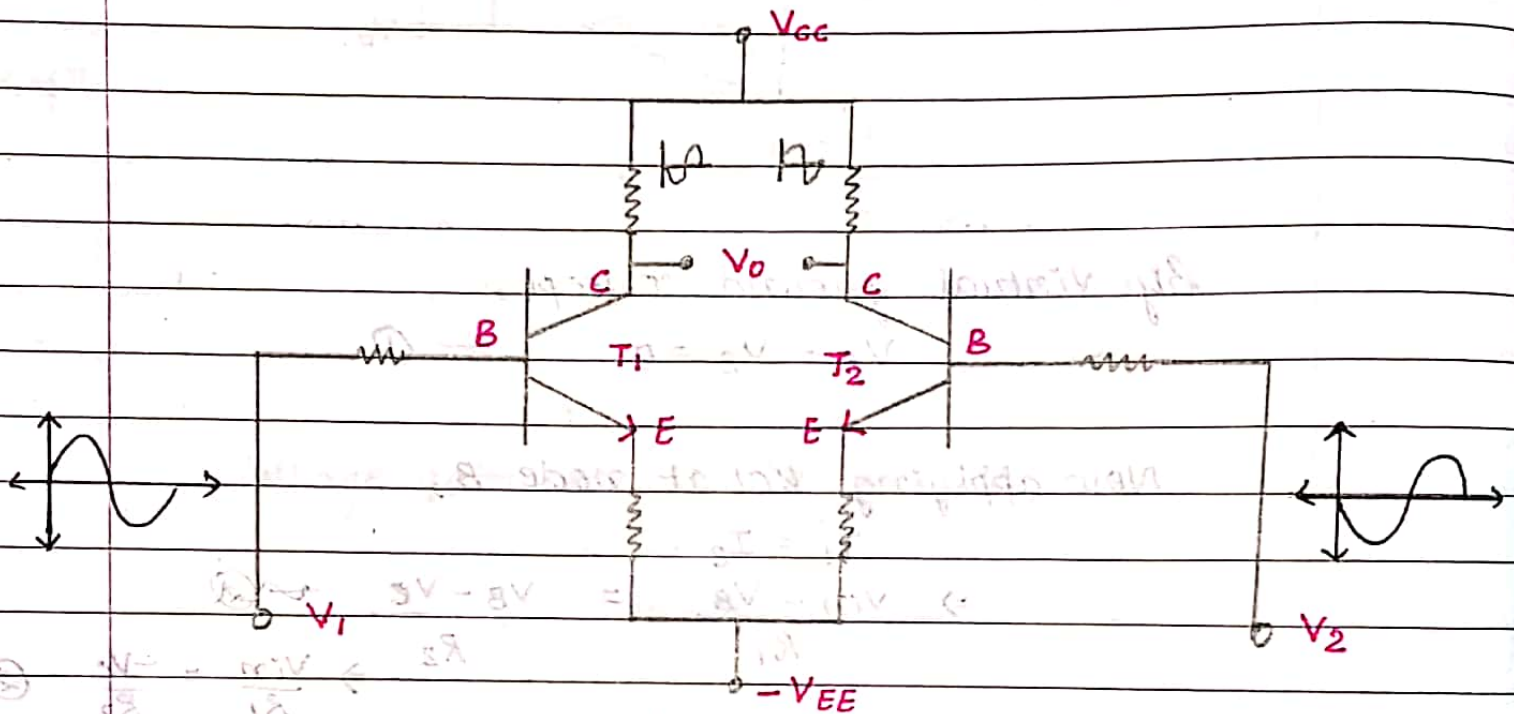 VCC
C Vo C
B T1 T2 B
E E
V1 V2
-VEE